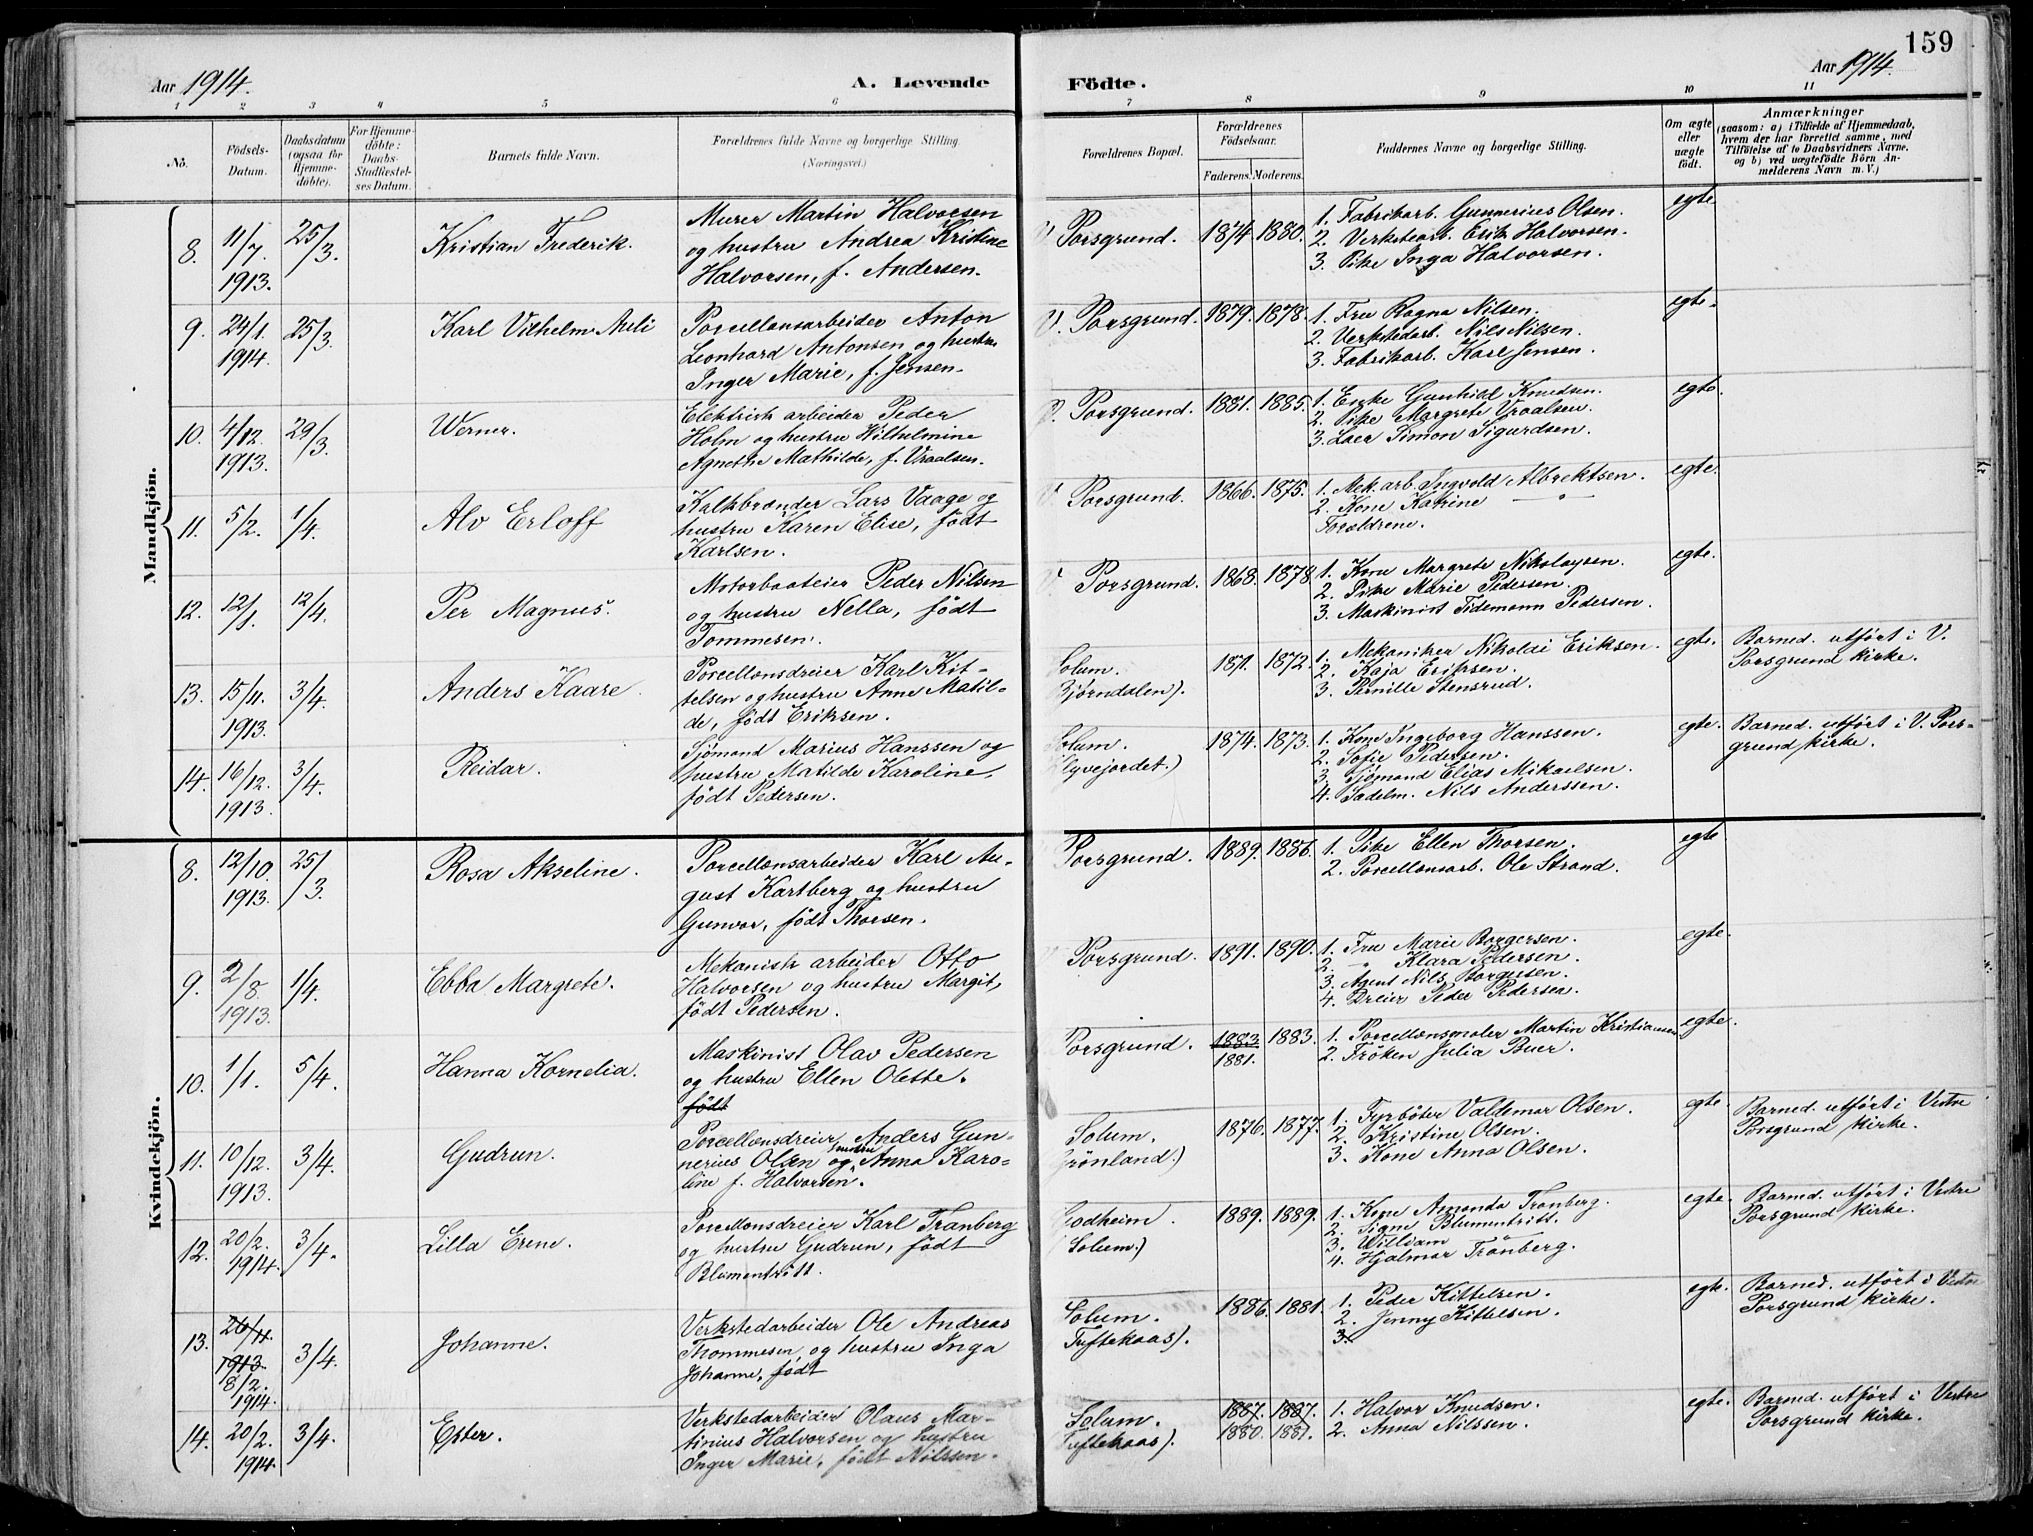 159
Aar 1914.
A. Levende
Födte.
Aar 1914.
1 2 3 4 5 6 7 8 9 10 11
No.
Födsels-
Datum.
Daabsdatum
(ogsaa for
Hjemme-
döbte).
For Hjemme-
döbte:
Daabs-
Stadfæstel-
ses Datum.
Barnets fulde Navn.
Forældrenes fulde Navne og borgerlige Stilling.
(Næringsvei.)
Forældrenes Bopæl.
Forældrenes
Födselsaar.
Faderens. Moderens.
Faddernes Navne og borgerlige Stilling.
Om ægte
eller
uægte
født.
Anmærkninger
(saasom: a) i Tilfælde af Hjemmedaab,
hvem der har forrettet samme, med
Tilföielse af to Daabsvidners Navne,
og b) ved uægtefödte Börn An-
melderens Navn m. V.)
Mandkjön.
8. 11/7. 1913. 25/3. Kristian Frederik.
Murer Martin Halvorsen
og hustru Andrea Kristine
Halvorsen, f. Andersen.
V. Porsgrund. 1874. 1880.
1. Fabrikarb. Gunnerius Olsen.
2. Verkstearb. Erik Halvorsen.
3. Pike Inga Halvorsen.
egte.
9. 24/1. 1914. 25/3. Karl Vilhelm Auli
Porcellænsarbeider Anton
Leonhard Antonsen og hustru
Inger Marie, f. Jensen.
V. Porsgrund. 1879. 1878.
1. Fru Ragna Nilsen.
2. Verkstedarb. Nils Nilsen.
3. Fabrikarb. Karl Jensen.
egte.
10. 4/12. 1913. 29/3. Werner.
Elektrisk arbeider Peder
Holm og hustru Wilhelmine
Agnethe Mathilde, f. Vraalsen.
V. Porsgrund. 1881. 1885.
1. Enke Gunhild Knudsen.
2. Pike Margrete Vraalsen.
3. Laer Simon Sigurdsen.
egte.
11. 5/2. 1/4. Alv Erloff
Kalkbrænder Lars Vaage og
hustru Karen Elise, født
Karlsen.
V. Porsgrund. 1866. 1875.
1. Mek. arb. Ingvold Albrektsen.
2. Kone Katrine — " —
Forældrene.
egte.
12. 12/1. 12/4. Per Magnus.
Motorbaateier Peder Nilsen
og hustru Nella, født
Tommesen.
V. Porsgrund. 1868. 1878
1. Kone Margrete Nikolaysen.
2. Pike Marie Pedersen.
3. Maskinist Tidemann Pedersen.
egte.
13. 15/11. 1913. 3/4. Anders Kaare.
Porcellænsdreier Karl Kit-
telsen og hustru Anne Matil-
de, født Eriksen.
Solum.
Bjørndalen).
1871. 1872.
1. Mekaniker Nikolai Eriksen.
2. Kaja Eriksen.
3. Pernille Stensrud.
egte.
Barned. utført i V.
Porsgrund kirke.
14. 16/12. 1913. 3/4. Reidar.
Sjømand Marius Hanssen og
hustru Matilde Karoline,
født Pedersen.
Solum.
Klyvejordet.)
1874. 1873.
1. Kone Ingeborg Hanssen.
2. Sofie Pedersen.
3. Sjømand Elias Mikaelsen.
4. Sadelm. Nils Anderssen.
egte.
Barned. utført i V. Pors-
grund kirke.
Kvindekjön.
8. 12/10. 1913. 25/3. Rosa Akseline.
Porcellænsarbeider Karl Au-
gust Kartberg og hustru
Gunvor, født Thorsen.
Porsgrund. 1889. 1886.
1. Pike Ellen Thorsen.
2. Porcellænsarb. Ole Strand.
egte
9. 2/8. 1913. 1/4. Ebba Margrete.
Mekanisk arbeider Otto
Halvorsen og hustru Margit,
født Pedersen.
Porsgrund. 1891. 1890.
1. Fru Marie Borgersen.
2. — " — Klara Pedersen.
3. Agent Nils Borgersen.
4. Dreier Peder Pedersen.
egte.
10. 1/1. 5/4. Hanna Kornelia.
Maskinist Olav Pedersen
og hustru Ellen Olette.
født
Porsgrund. 1883 1881. 1883.
1. Porcellænsmaler Martin Kristiansen
2. Frøken Julia Buer.
egte.
11. 10/12. 1913. 3/4. Gudrun.
Porcellænsdreier Anders Gun-
nerius Olsen og hustru Anna Karo-
line f. Halvorsen.
Solum.
Grönland.)
1876. 1877.
1. Fyrbøter Valdemar Olsen.
2. Kristine Olsen.
3. Kone Anna Olsen.
egte.
Barned. utført i Vestre
Porsgrund kirke.
12. 20/2. 1914. 3/4. Lilla Erene.
Porcellænsdreier Karl Tranberg
og hustru Gudrun, født
Blumentritt.
Godheim.
(Solum.)
1889. 1889.
1. Kone Amanda Tranberg.
2. Signe Blumentritt.
3. William — " —
4. Hjalmar Tranberg.
egte.
Barned. utført i Vestre
Porsgrund kirke.
13. 26/11. 1913. 8/2. 1914. 3/4. Johanne.
Verkstedarbeider Ole Andreas
Thommesen og hustru Inga
Johanne, født
Solum.
Tuftekaas).
1886. 1881.
1. Peder Kittelsen.
2. Jenny Kittelsen.
3.
egte.
Barned. utført i Vestre
Porsgrund kirke.
14. 20/2. 1914. 3/4. Ester.
Verkstedarbeider Olaus Mar-
tinius Halvorsen og hustru
Inger Marie, født Nilssen.
Solum.
(Tuftekaas).
1887. 1887.
1880. 1881.
1. Halvor Knudsen.
2. Anna Nilssen.
egte.
Barned. utført i Vestre
Porsgrund kirke.